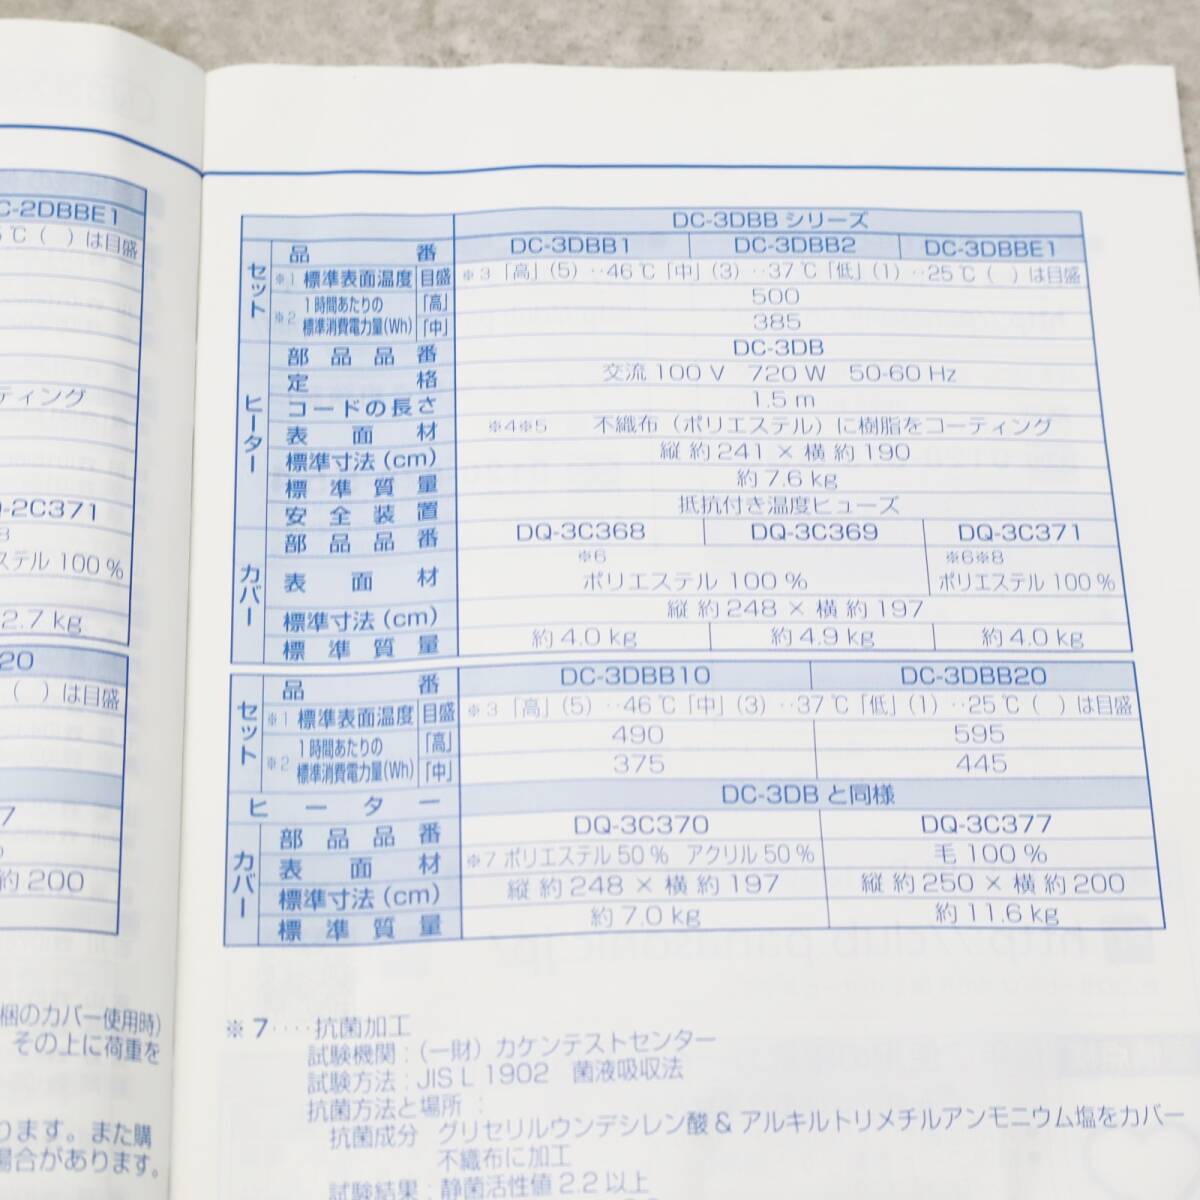 C-2DBBE1
5℃（ ）は目盛
ティング
-2C371
8
ステル 100 %
2.7 kg
20
（ ）は目盛
7
約 200
梱のカバー使用時)
その上に荷重を
ります。また購
場合があります。
DC-3DBB シリーズ
セット
品番 DC-3DBB1 DC-3DBB2 DC-3DBBE1
※1 標準表面温度 目盛 ※3「高」(5)‥46℃「中」(3)‥37℃「低」(1)‥25℃（ ）は目盛
※2 1時間あたりの標準消費電力量(Wh) 「高」 500
「中」 385
ヒーター
部品品番 DC-3DB
定格 交流 100 V 720 W 50-60 Hz
コードの長さ 1.5 m
表面材 ※4※5 不織布（ポリエステル）に樹脂をコーティング
標準寸法(cm) 縦 約 241 × 横 約 190
標準質量 約 7.6 kg
安全装置 抵抗付き温度ヒューズ
カバー
部品品番 DQ-3C368 DQ-3C369 DQ-3C371
表面材 ※6 ポリエステル 100 % ※6※8 ポリエステル 100 %
標準寸法(cm) 縦 約 248 × 横 約 197
標準質量 約 4.0 kg 約 4.9 kg 約 4.0 kg
セット
品番 DC-3DBB10 DC-3DBB20
※1 標準表面温度 目盛 ※3「高」(5)‥46℃「中」(3)‥37℃「低」(1)‥25℃（ ）は目盛
※2 1時間あたりの標準消費電力量(Wh) 「高」 490 595
「中」 375 445
ヒーター DC-3DB と同様
カバー
部品品番 DQ-3C370 DQ-3C377
表面材 ※7 ポリエステル 50 % アクリル 50 % 毛 100 %
標準寸法(cm) 縦 約 248 × 横 約 197 縦 約 250 × 横 約 200
標準質量 約 7.0 kg 約 11.6 kg
※7‥‥抗菌加工
試験機関：(一財) カケンテストセンター
試験方法：JIS L 1902 菌液吸収法
抗菌方法と場所：
抗菌成分 グリセリルウンデシレン酸 & アルキルトリメチルアンモニウム塩をカバー
不織布に加工
試験結果：静菌活性値 2.2 以上